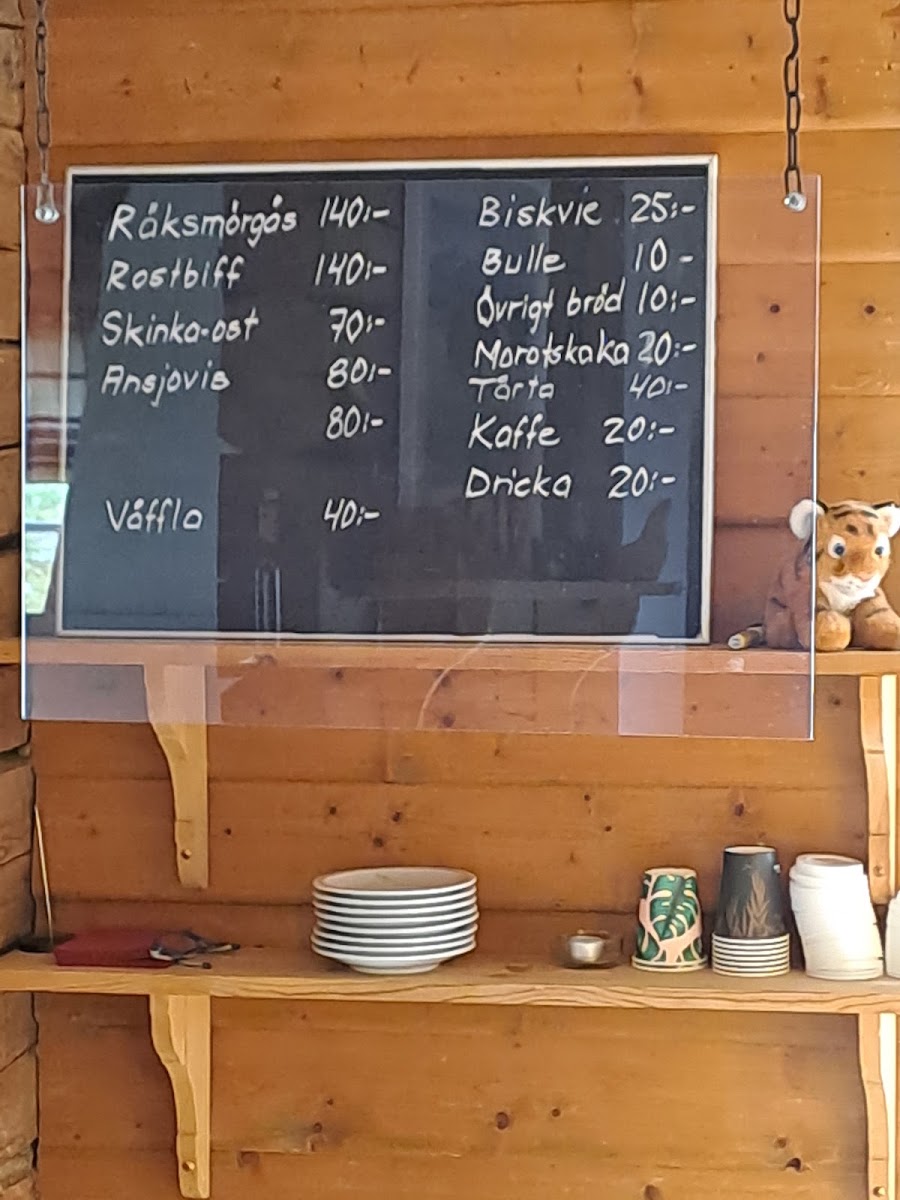 Räksmörgås 140:-
Rostbiff 140:-
Skinka-ost 70:-
Ansjovis 80:-
80:-
Våffla 40:-
Biskvie 25:-
Bulle 10-
Övrigt bröd 10:-
Morotskaka 20:-
Tårta 40:-
Kaffe 20:-
Dricka 20:-